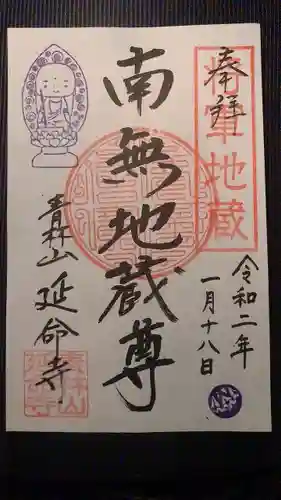 奉拝
将軍地蔵
令和二年
一月十八日
南無地蔵尊
青林山
延命寺